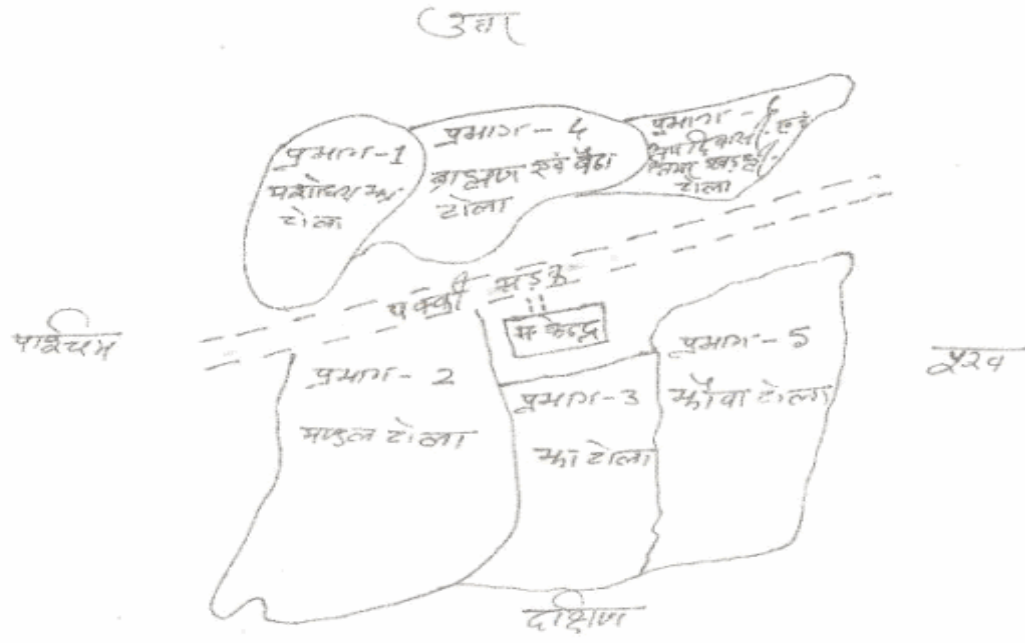 उत्तर
प्रभाग-1
टोला
प्रभाग - 4
ब्राह्मण एवं बैठा
टोला
प्रभाग - 6
एवं
टोला
पक्की सड़क
म. केन्द्र
पश्चिम
पूरब
प्रभाग - 2
मण्डल टोला
प्रभाग-3
झा टोला
प्रभाग - 5
कौवा टोला
दक्षिण